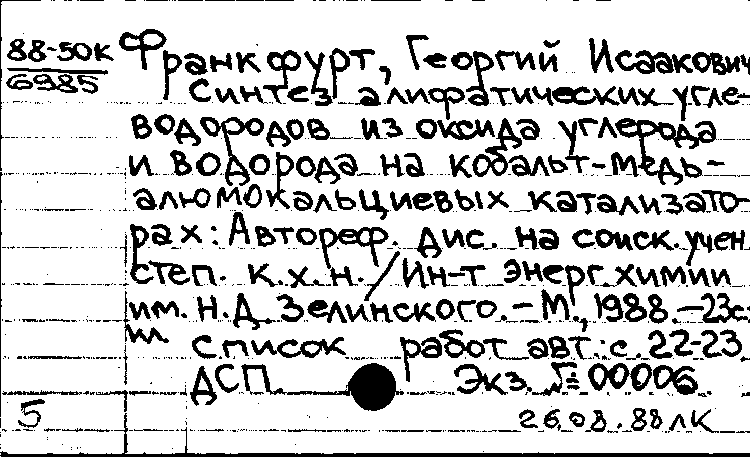 88-50к
6985
Франкфурт, Георгий Исаакович
Синтез алифатических угле-
водородов из оксида углерода
и водорода на кобальт-медь-
алюмокальциевых катализато-
рах: Автореф. дис. на соиск. учен.
степ. к.х.н. / Ин-т энерг. химии
им. Н.Д. Зелинского. – М., 1988. – 23с.
ил.
Список работ авт.: с. 22-23.
ДСП. Экз. № 00006.
5
26.08.88 лк